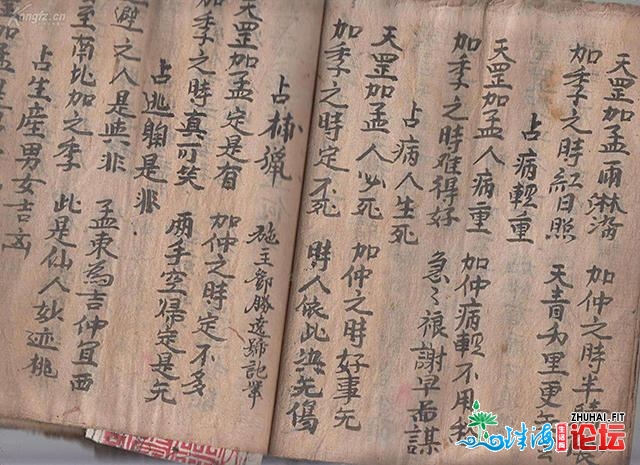 天罡加孟雨淋漓 加仲之時半
加季之時紅日照 天青万里更
占病輕重
天罡加孟人病重 加仲病輕不用
加季之時难得好 急々禳謝早啚謀
占病人生死
天罡加孟人必死 加仲之時好事无
加季之時定不死 時人依此无傷
占猎 施主鄧勝遠記筆
天罡加孟定是有 加仲之時定不多
加季之時真可笑 两手空歸定是无
占逃躲是非
避之人是與非 孟東為吉仲宜西
至南北加之季 此是仙人妙迹桃
占生産男女吉凶
加孟
Kongfz.cn
ZHUHAI.FIT
珠海
生活网
论坛